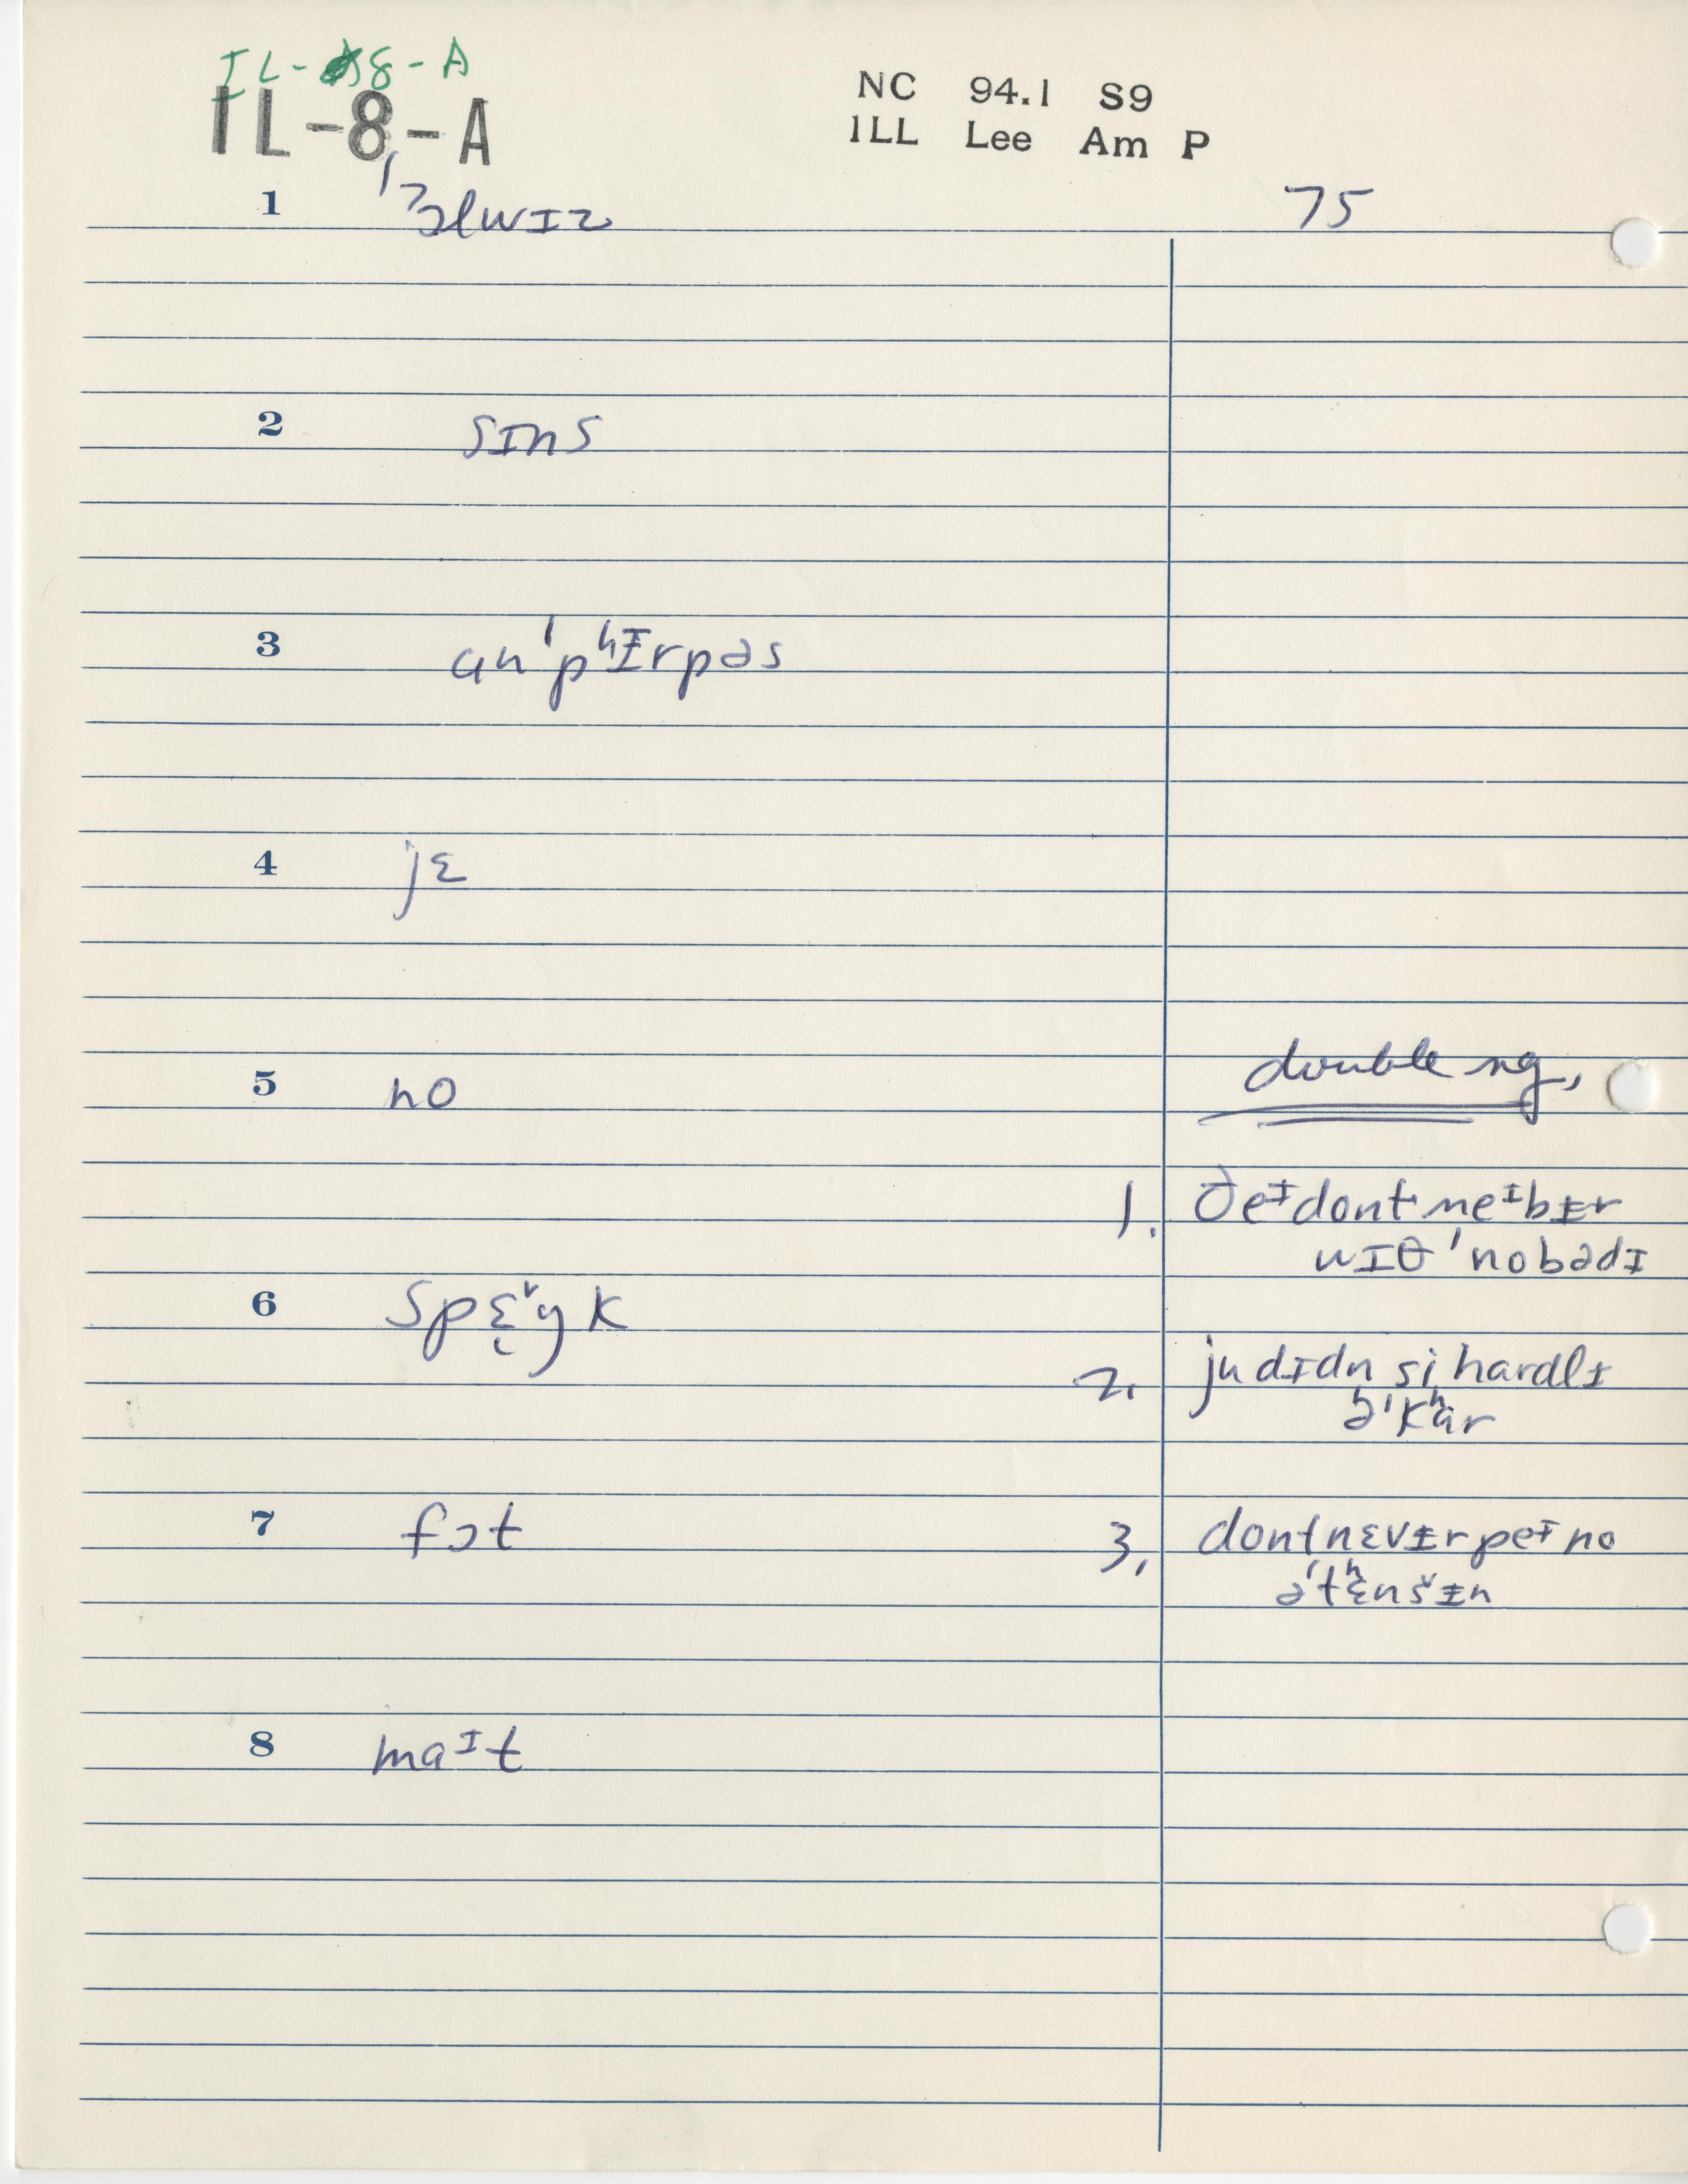 IL-8-A
IL-8-A
NC 94.1 S9
ILL Lee Am P
1 ˈʔɔlwɪz 75
2 sɪns
3 anˈpʰɪ̵rpəs
4 jɛ
5 no
double ng.
1. ðeᶦdont neᶦbɪ̵r
wɪθ ˈnobədɪ
6 spɛ̨ˇyk
2. ju dɪdn si hardlɪ
əˈkʰar
7 fɔt
3. dont nɛvɪ̵r peᶦ no
əˈtʰɛnšɪ̵n
8 maᶦt